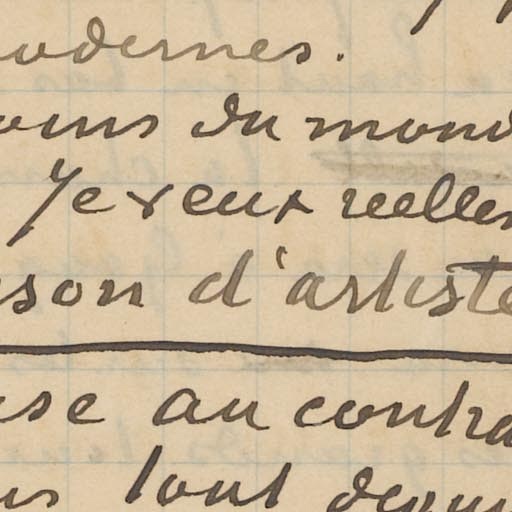 odernes.
oins du mond
Je veux reellem
ison d'artiste
ese au contra
us tout depui